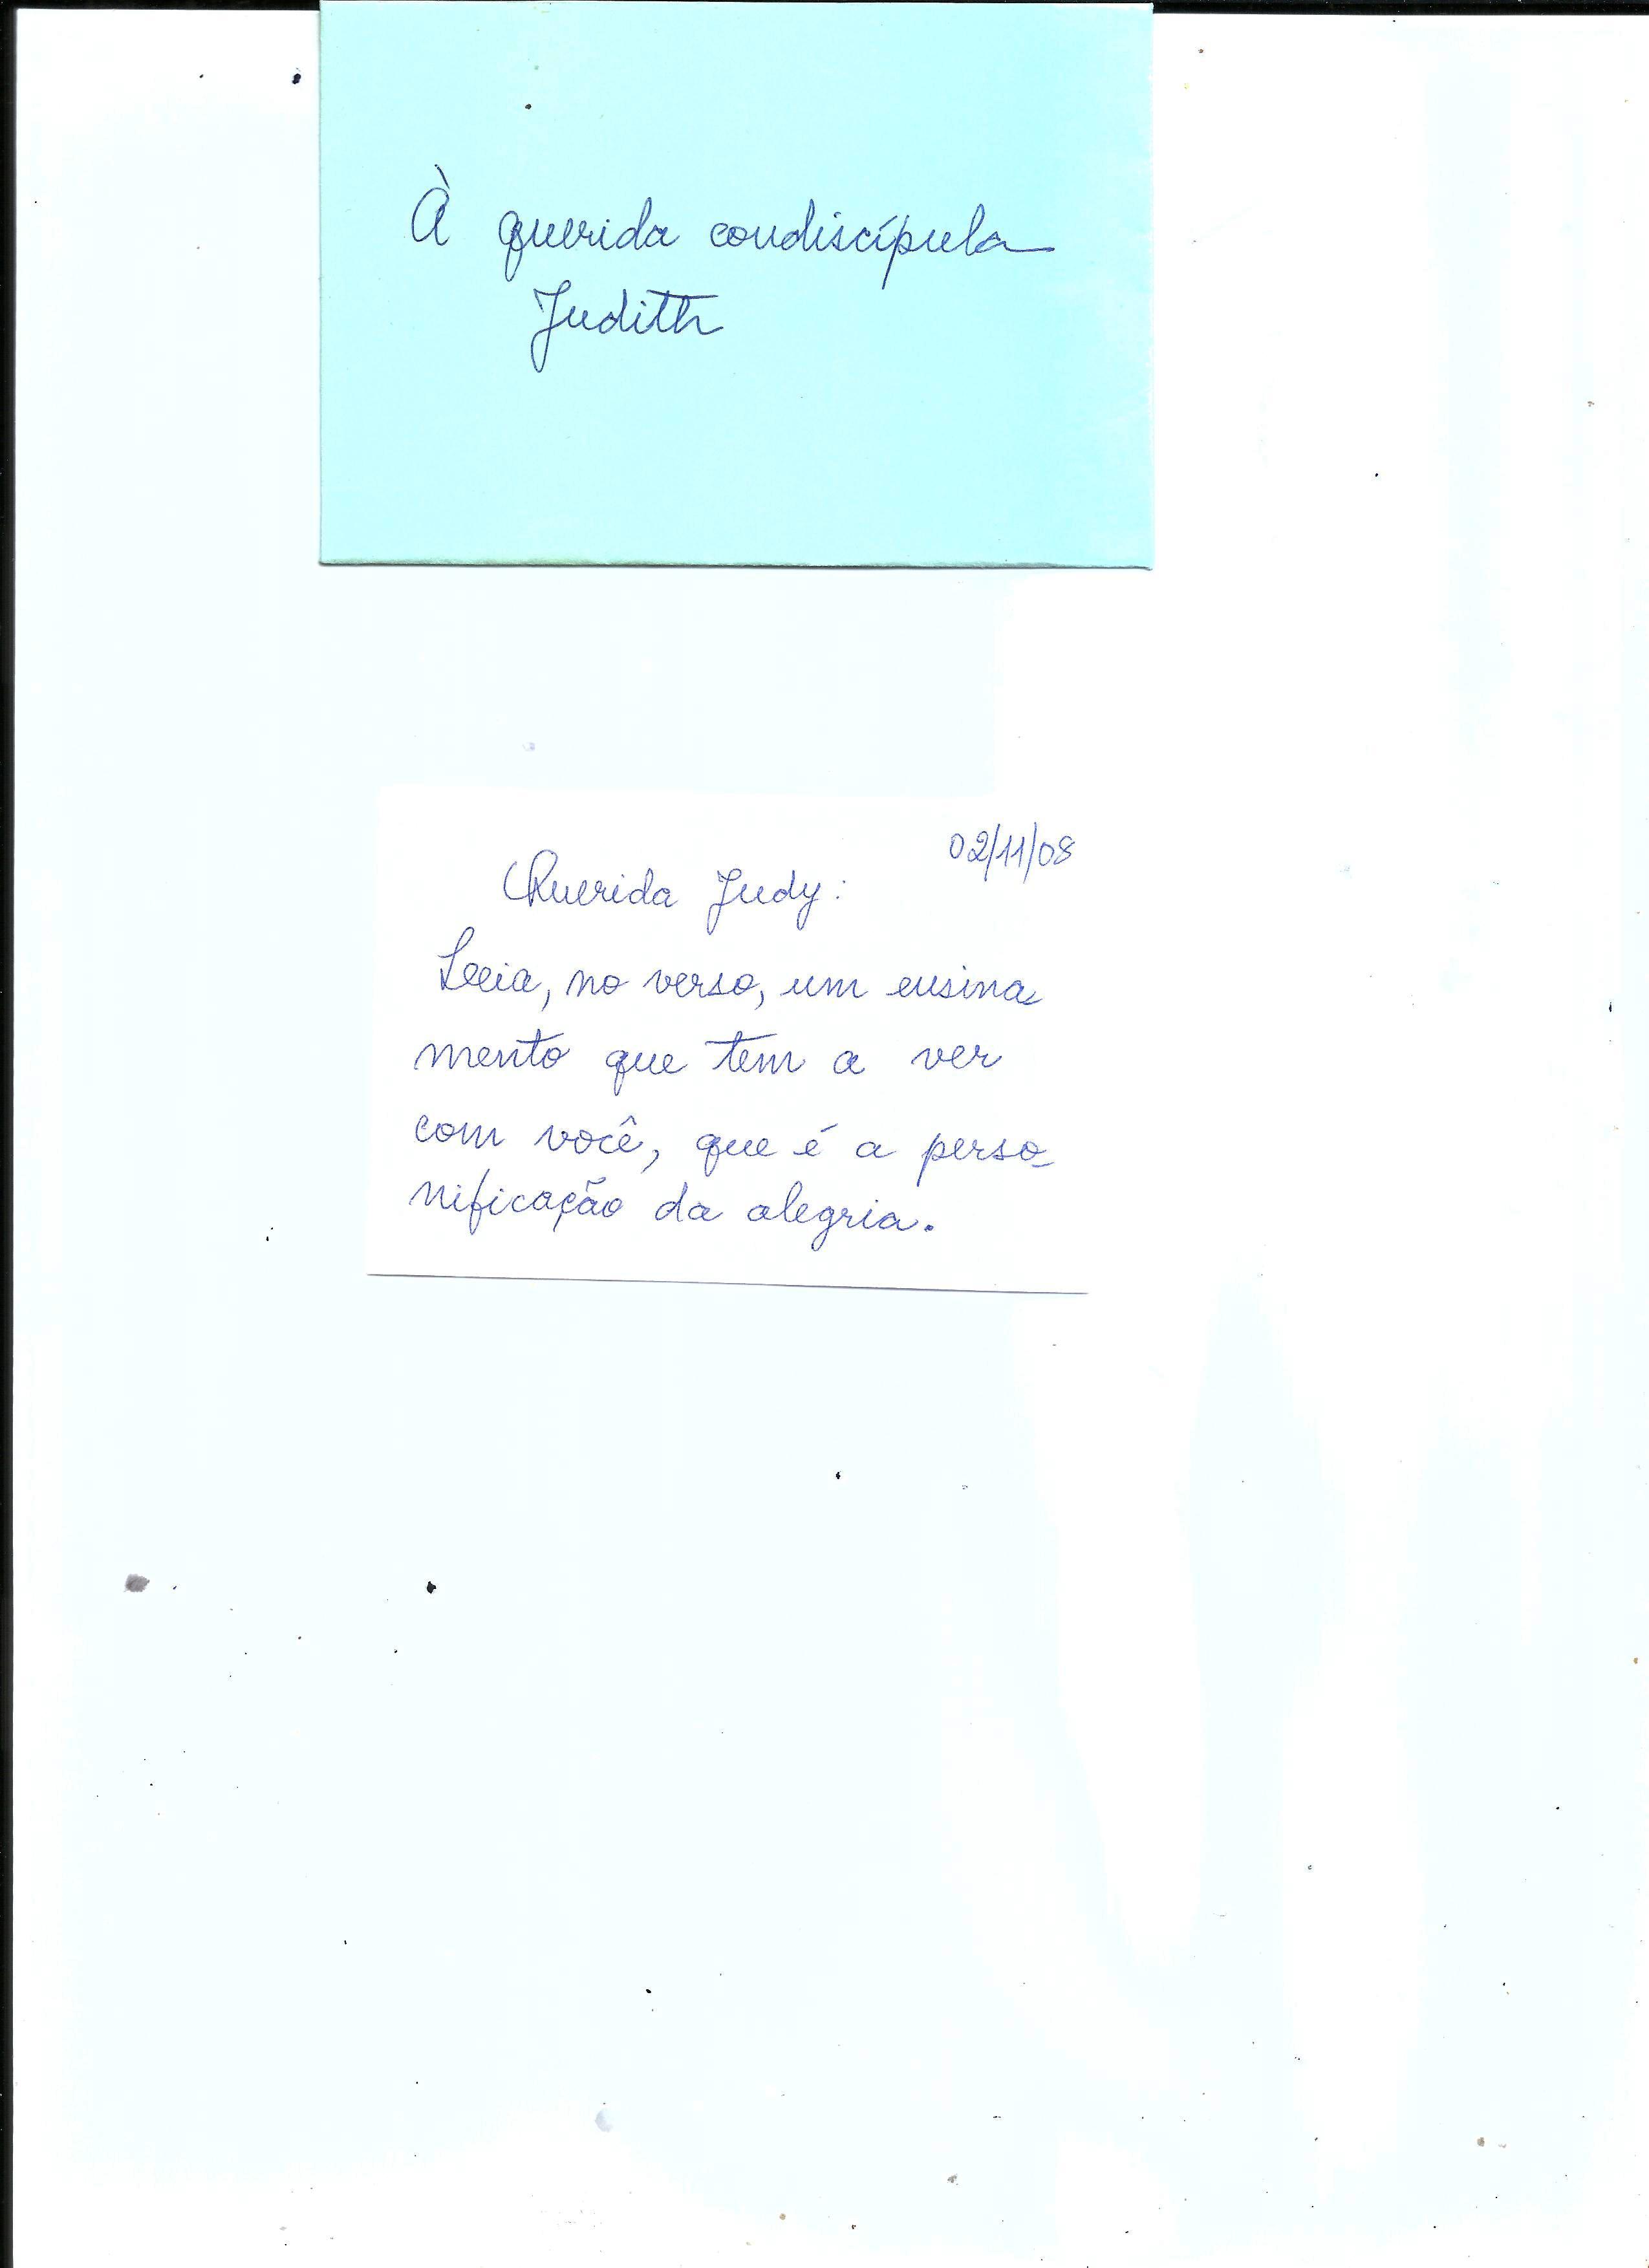 À querida condiscípula
Judith
02/11/08
Querida Judy:
Leia, no verso, um ensina
mento que tem a ver
com você, que é a perso_
nificação da alegria.